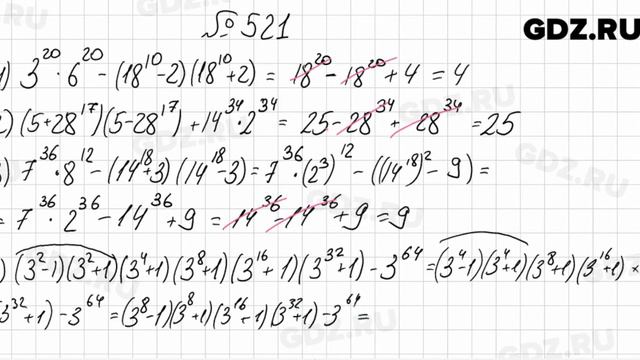 № 521
GDZ.RU
1) 3^20 · 6^20 - (18^10 - 2)(18^10 + 2) = 18^20 - 18^20 + 4 = 4
2) (5+28^17)(5-28^17) + 14^34 · 2^34 = 25 - 28^34 + 28^34 = 25
) 7^36 · 8^12 - (14^18 + 3)(14^18 - 3) = 7^36 · (2^3)^12 - ((14^18)^2 - 9) =
= 7^36 · 2^36 - 14^36 + 9 = 14^36 - 14^36 + 9 = 9
) (3^2-1)(3^2+1)(3^4+1)(3^8+1)(3^16+1)(3^32+1) - 3^64 = (3^4-1)(3^4+1)(3^8+1)(3^16+1) ×
(3^32+1) - 3^64 = (3^8-1)(3^8+1)(3^16+1)(3^32+1) - 3^64 =